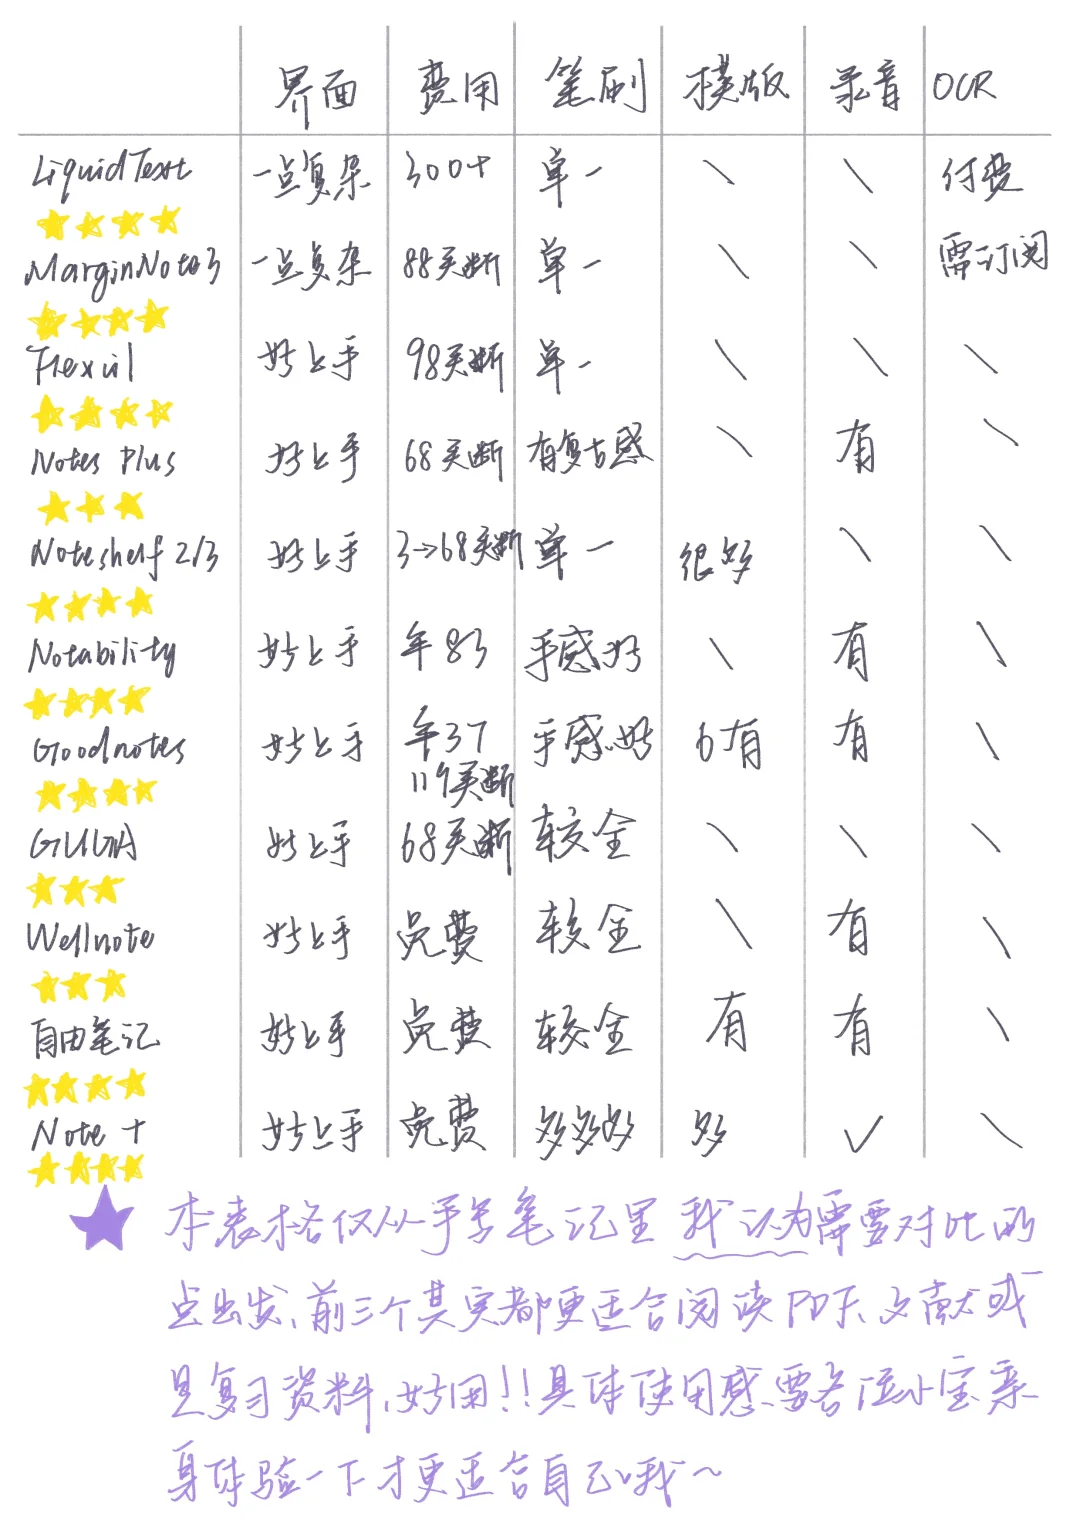 界面 费用 笔刷 模版 录音 OCR
LiquidText 一点复杂 300+ 单一 \ \ 付费
MarginNote3 一点复杂 88买断 单一 \ \ 需订阅
Flexcil 好上手 98买断 单一 \ \ \
Notes Plus 好上手 68买断 有复古感 \ 有 \
Noteshelf 2/3 好上手 3→68买断 单一 很多 \ \
Notability 好上手 年83 手感好 \ 有 \
Goodnotes 好上手 年37 手感好 有 有 \
119买断
GUGA 好上手 68买断 较全 \ \ \
Wellnote 好上手 免费 较全 \ 有 \
自由笔记 好上手 免费 较全 有 有 \
Note+ 好上手 免费 多多多 多 ✓ \
本表格仅从手写笔记里 我认为需要对比的
点出发、前三个其实都更适合阅读PDF、文献或
是复习资料,好用!!具体使用感、要各位小宝亲
身体验一下才更适合自己哦~